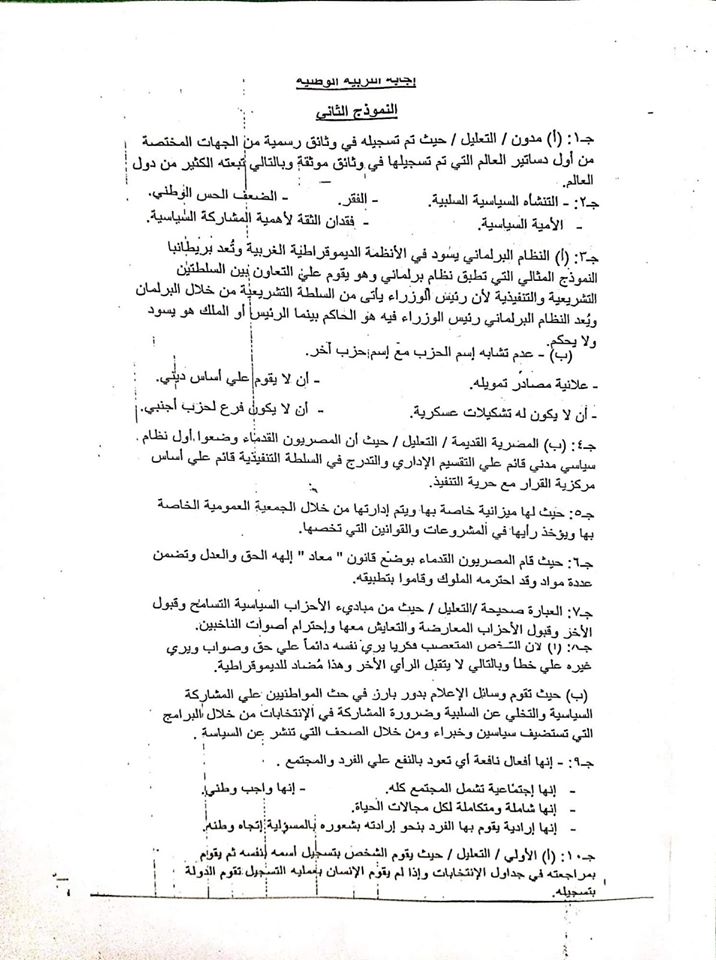 إجابة التربية الوطنية
النموذج الثاني
جـ١: (أ) مدون / التعليل / حيث تم تسجيله في وثائق رسمية من الجهات المختصة
من أول دساتير العالم التي تم تسجيلها في وثائق موثقة وبالتالي تبعته الكثير من دول
العالم.
جـ٢: - التنشأه السياسية السلبية. - الفقر. - الضعف الحس الوطني.
- الأمية السياسية. - فقدان الثقة لأهمية المشاركة السياسية.
جـ٣: (أ) النظام البرلماني يسود في الأنظمة الديموقراطية الغربية وتُعد بريطانبا
النموذج المثالي التي تطبق نظام برلماني وهو يقوم علي التعاون بين السلطتين
التشريعية والتنفيذية لأن رئيس الوزراء يأتى من السلطة التشريعية من خلال البرلمان
ويُعد النظام البرلماني رئيس الوزراء فيه هو الحاكم بينما الرئيس أو الملك هو يسود
ولا يحكم.
(ب) - عدم تشابه إسم الحزب مع إسم حزب آخر.
- علانية مصادر تمويله. - أن لا يقوم علي أساس ديني.
- أن لا يكون له تشكيلات عسكرية. - أن لا يكون فرع لحزب أجنبي.
جـ٤: (ب) المصرية القديمة / التعليل / حيث أن المصريون القدماء وضعوا أول نظام
سياسي مدني قائم علي التقسيم الإداري والتدرج في السلطة التنفيذية قائم علي أساس
مركزية القرار مع حرية التنفيذ.
جـ٥: حيث لها ميزانية خاصة بها ويتم إدارتها من خلال الجمعية العمومية الخاصة
بها ويؤخذ رأيها في المشروعات والقوانين التي تخصها.
جـ٦: حيث قام المصريون القدماء بوضع قانون " معاد " إلهه الحق والعدل وتضمن
عددة مواد وقد احترمه الملوك وقاموا بتطبيقه.
جـ٧: العبارة صحيحة /التعليل / حيث من مباديء الأحزاب السياسية التسامح وقبول
الأخر وقبول الأحزاب المعارضة والتعايش معها وإحترام أصوات الناخبين.
جـ٨: (أ) لأن الشخص المتعصب فكريا يري نفسه دائماً علي حق وصواب ويري
غيره علي خطأ وبالتالي لا يتقبل الرأي الأخر وهذا مُضاد للديموقراطية.
(ب) حيث تقوم وسائل الإعلام بدور بارز في حث المواطنيين علي المشاركة
السياسية والتخلي عن السلبية وضرورة المشاركة في الإنتخابات من خلال البرامج
التي تستضيف سياسين وخبراء ومن خلال الصحف التي تنشر عن السياسة .
جـ٩: - إنها أفعال نافعة أي تعود بالنفع علي الفرد والمجتمع .
- إنها إجتماعية تشمل المجتمع كله. - إنها واجب وطني.
- إنها شاملة ومتكاملة لكل مجالات الحياة.
- إنها إرادية يقوم بها الفرد بنحو إرادته بشعوره بالمسؤلية إتجاه وطنه.
جـ١٠: (أ) الأولي / التعليل / حيث يقوم الشخص بتسجيل أسمه بنفسه ثم يقوم
بمراجعته في جداول الإنتخابات وإذا لم يقوم الإنسان بعمليه التسجيل تقوم الدولة
بتسجيله.